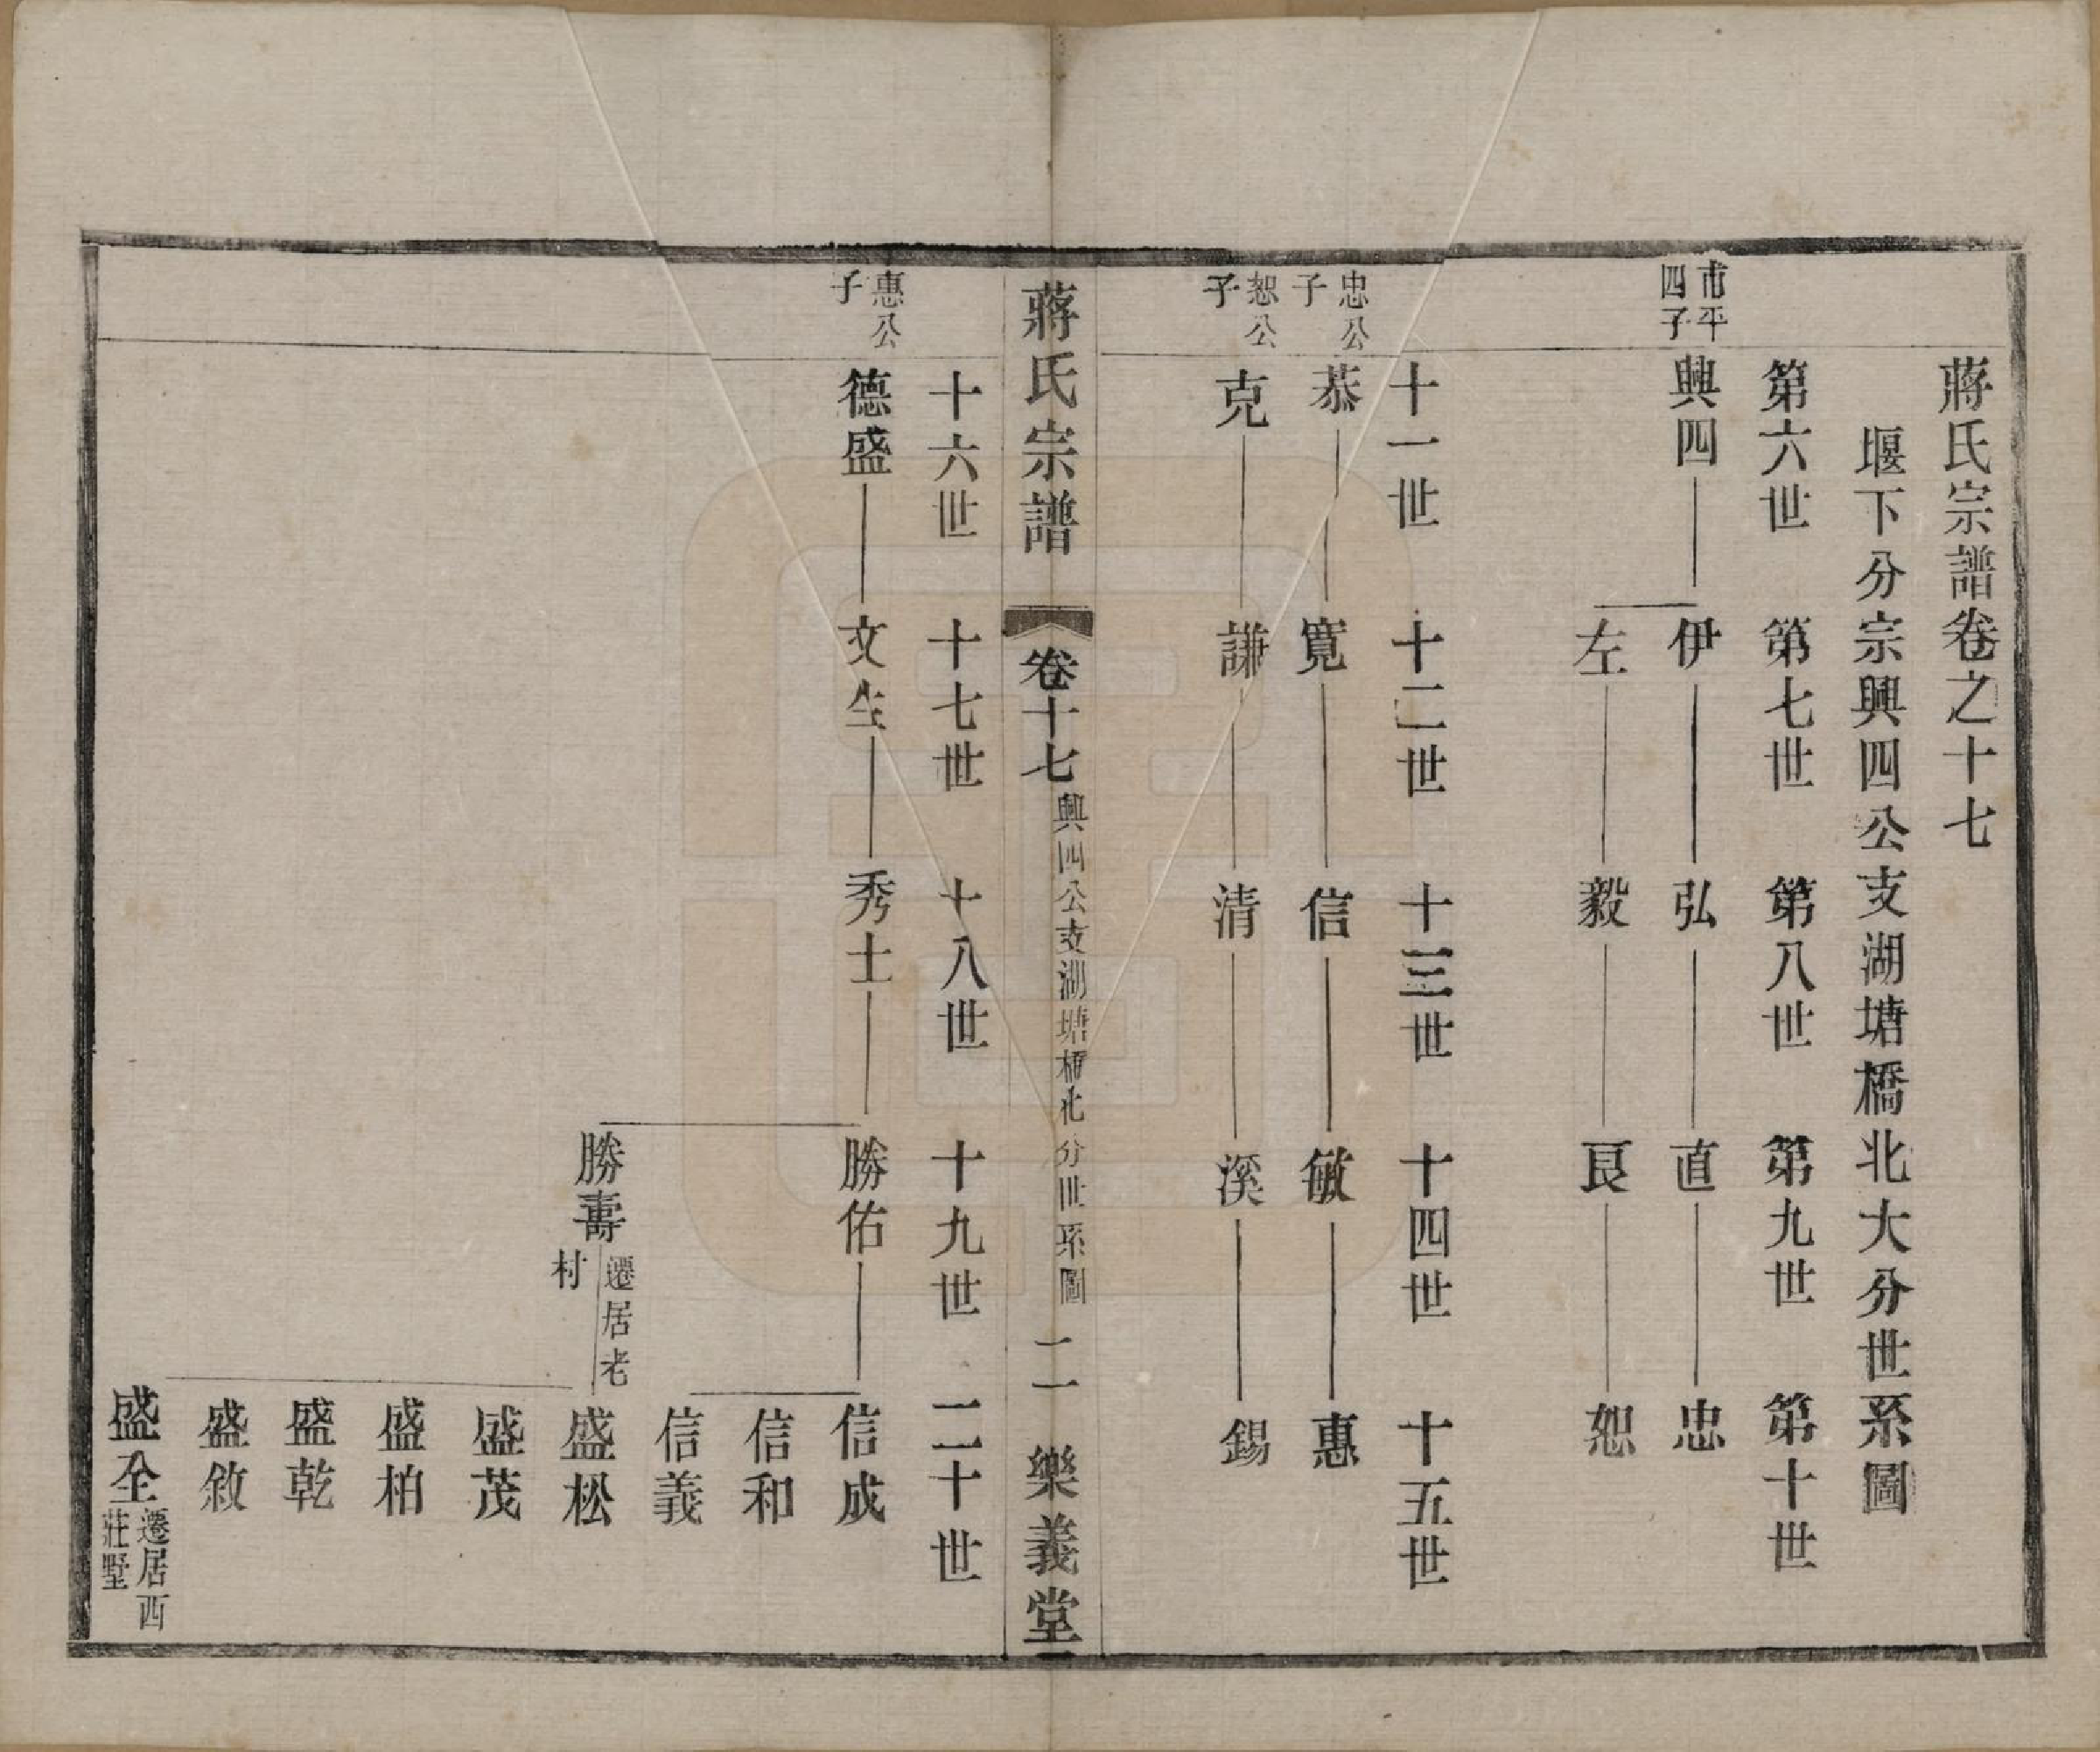 蔣氏宗譜卷之十七
堰下分宗興四公支湖塘橋北大分世系圖
第六世 第七世 第八世 第九世 第十世
市平四子
興四 伊 弘 直 忠
左 毅 艮 恕
十一世 十二世 十三世 十四世 十五世
忠公子
恭 寬 信 敏 惠
恕公子
克 謙 清 溪 錫
蔣氏宗譜 卷十七 興四公支湖塘橋北分世系圖 二 樂義堂
十六世 十七世 十八世 十九世 二十世
惠公子
德盛 文生 秀士 勝佑 信成
信和
信義
勝壽 遷居老村 盛松
盛茂
盛柏
盛乾
盛敘
盛全 遷居西莊墅